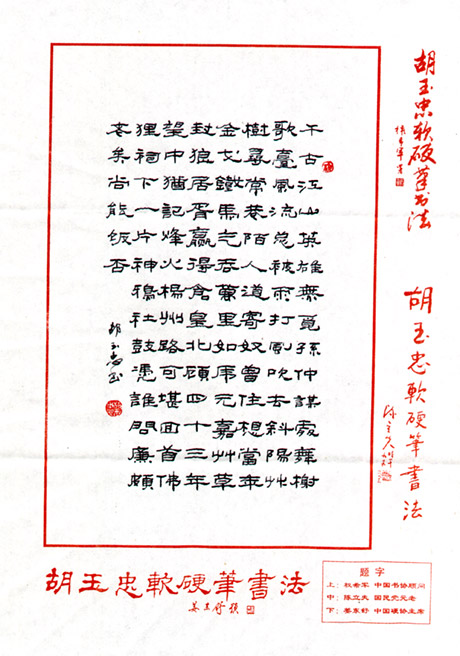 千古江山英雄無覓孫仲謀處舞榭
歌臺風流總被雨打風吹去斜陽艸
樹尋常巷陌人道寄奴曾住想當年
金戈鐵馬气吞萬里如虎元嘉艸草
封狼居胥贏得倉皇北顧四十三年
望中猶記烽火楊州路可堪回首佛
狸祠下一片神鴉社鼓憑誰問廉頗
老矣尚能飯否
胡玉忠
胡玉忠软硬笔书法
权希军
胡玉忠軟硬筆書法
陈立夫
胡玉忠軟硬筆書法
姜东舒题
题字
上：权希军 中国书协顾问
中：陈立夫 国民党元老
下：姜东舒 中国硬协主席